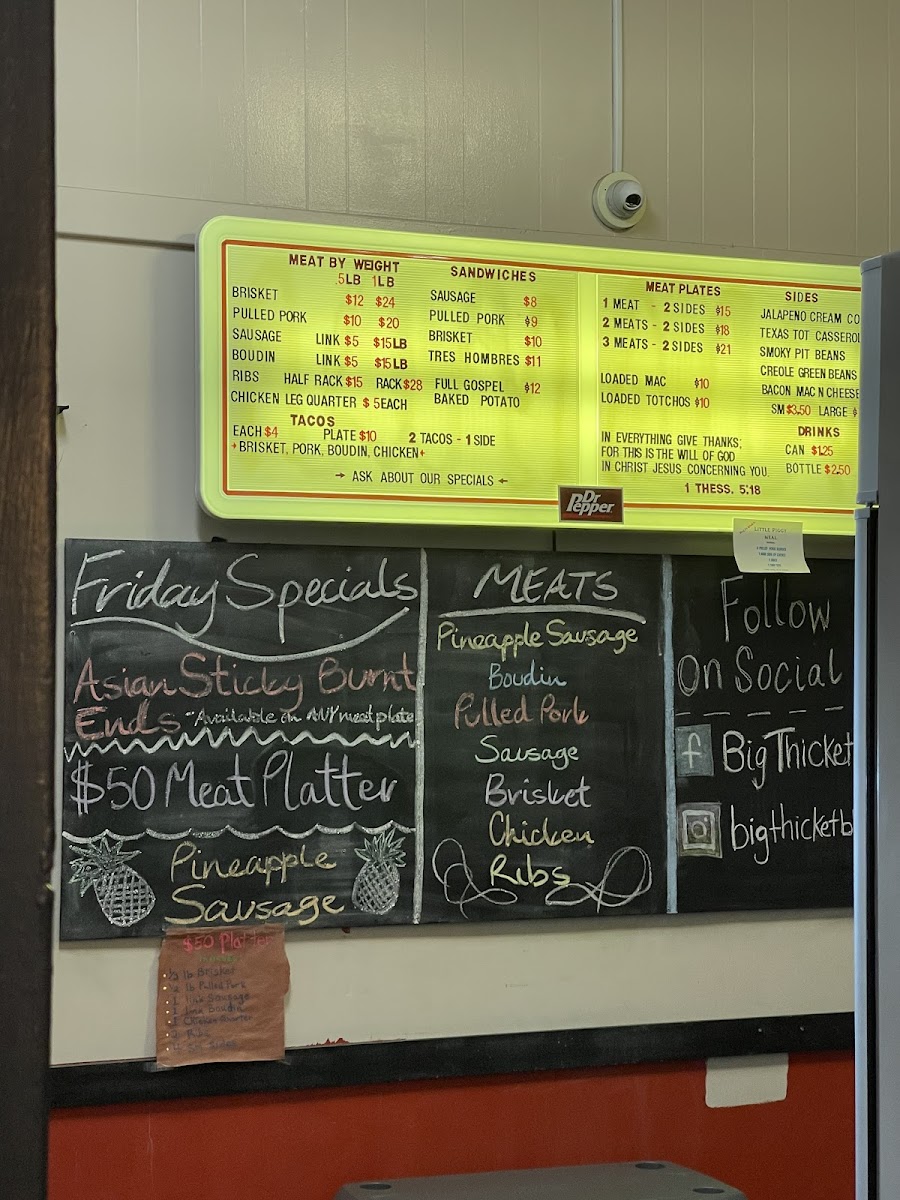 MEAT BY WEIGHT
.5LB 1LB
BRISKET $12 $24
PULLED PORK $10 $20
SAUSAGE LINK $5 $15LB
BOUDIN LINK $5 $15LB
RIBS HALF RACK $15 RACK $28
CHICKEN LEG QUARTER $5EACH
TACOS
EACH $4 PLATE $10 2 TACOS - 1 SIDE
BRISKET, PORK, BOUDIN, CHICKEN
SANDWICHES
SAUSAGE $8
PULLED PORK $9
BRISKET $10
TRES HOMBRES $11
FULL GOSPEL $12
BAKED POTATO
→ ASK ABOUT OUR SPECIALS ←
MEAT PLATES
1 MEAT - 2 SIDES $15
2 MEATS - 2 SIDES $18
3 MEATS - 2 SIDES $21
LOADED MAC $10
LOADED TOTCHOS $10
IN EVERYTHING GIVE THANKS;
FOR THIS IS THE WILL OF GOD
IN CHRIST JESUS CONCERNING YOU.
1 THESS. 5:18
SIDES
JALAPENO CREAM CO
TEXAS TOT CASSEROL
SMOKY PIT BEANS
CREOLE GREEN BEANS
BACON MAC N CHEESE
SM $3.50 LARGE $
DRINKS
CAN $1.25
BOTTLE $2.50
Dr
Pepper
LITTLE PIGGY
MEAL
Friday Specials
Asian Sticky Burnt
Ends *Available on ANY meat plate
$50 Meat Platter
Pineapple
Sausage
MEATS
Pineapple Sausage
Boudin
Pulled Pork
Sausage
Brisket
Chicken
Ribs
Follow
On Social
f Big Thicket
bigthicketb
$50 Platter
1/2 lb Brisket
1/2 lb Pulled Pork
1 link Sausage
1 link Boudin
1 Chicken Quarter
Ribs
Sides